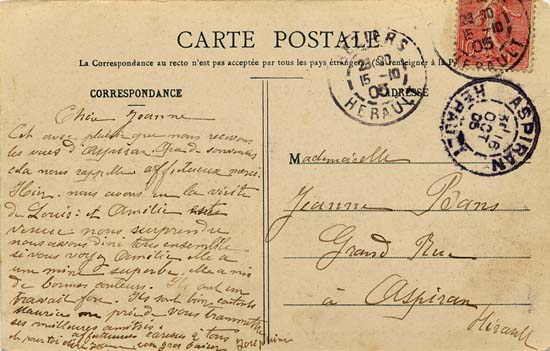 CARTE POSTALE
La Correspondance au recto n'est pas acceptée par tous les pays étrangers (Se renseigner à la
CORRESPONDANCE
ADRESSE
BEZIERS
23 30
15 -10
05
HERAULT
23 30
15 -10
05
HERAULT
ASPIRAN
16
OCT
05
HERAULT
Chère Jeanne
C'est avec plaisir que nous recevons
les vues d'Aspiran. Que de souvenirs
cela nous rappelle affectueux merci.
Hier nous avons eu la visite
de Louis et Amélie
venue nous surprendre
nous avons diné tous ensemble
si vous voyez Amélie elle a
une mine superbe, elle a mis
de bonnes couleurs. Ils ont un
travail fou. Ils sont bien contents
Maurice me prie de vous transmettre
ses meilleures amitiés
affectueuses caresses à tous
et pour toi un gros baiser
Josephine
Mademoiselle
Jeanne Bans
Grand Rue
à Aspiran
Hérault